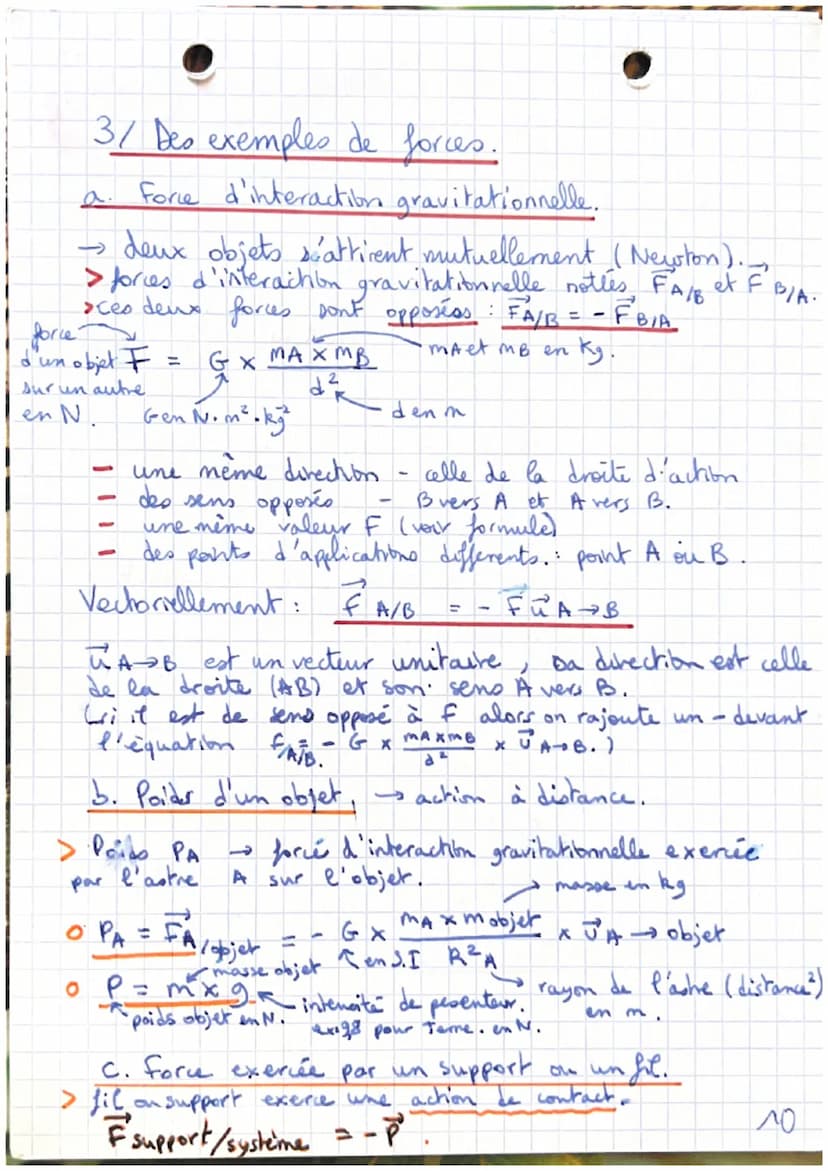 3/ Des exemples de forces.
a. Force d'interaction gravitationnelle.
→ deux objets s'attirent mutuellement (Newton).
> forces d'interaction gravitationnelle notées F⃗ A/B et F⃗ B/A.
> ces deux forces sont opposées : F⃗ A/B = - F⃗ B/A
force d'un objet sur un autre en N.
F = G x mA x mB / d²
mA et mB en kg.
G en N.m².kg⁻²
d en m
- une même direction - celle de la droite d'action
- des sens opposés - B vers A et A vers B.
- une même valeur F (voir formule)
- des points d'applications differents. : point A ou B.
Vectoriellement : f⃗ A/B = - F u⃗ A→B
u⃗ A→B est un vecteur unitaire, sa direction est celle
de la droite (AB) et son sens A vers B.
(si il est de sens opposé à f alors on rajoute un - devant
l'équation f A/B = - G x mA x mB / d² x U⃗ A→B.)
b. Poids d'un objet, → action à distance.
> Poids PA → force d'interaction gravitationnelle exercée
par l'astre A sur l'objet.
masse en kg
o PA = F⃗A/objet = - G x mA x mobjet / R²A x U⃗ A → objet
en S.I
masse objet
rayon de l'astre (distance²) en m.
o P = m x g
intensité de pesenteur.
poids objet en N.
ex: 9,8 pour Terre. en N.
c. Force exercée par un support ou un fil.
> fil ou support exerce une action de contact.
F⃗ support/système = - P⃗.
10